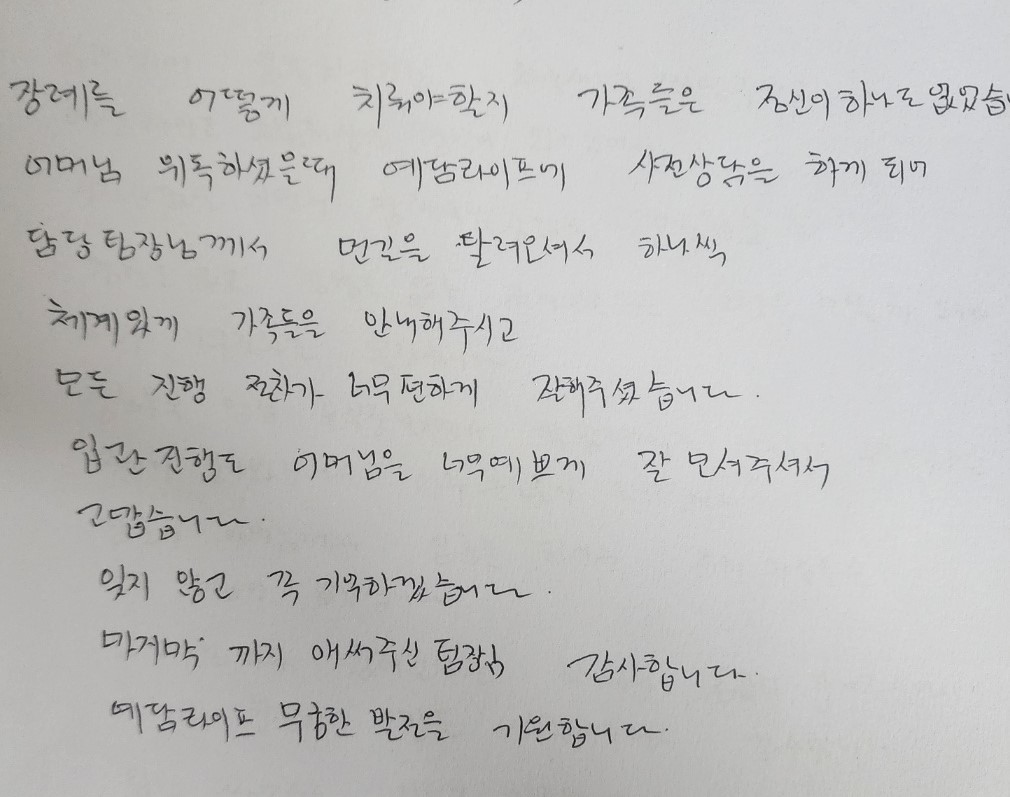 장례를 어떻게 치뤄야할지 가족들은 정신이 하나도 없었습
어머님 위독하셨을때 예담라이프에 사전상담을 하게 되어
담당팀장님께서 먼길을 달려오셔서 하나씩
체계있게 가족들을 안내해주시고
모든 진행 절차가 너무 편하게 잘해주셨습니다.
입관 진행도 어머님을 너무 예쁘게 잘 모셔주셔서
고맙습니다.
잊지 않고 꼭 기억하겠습니다.
마지막 까지 애써주신 팀장님 감사합니다.
예담라이프 무궁한 발전을 기원합니다.